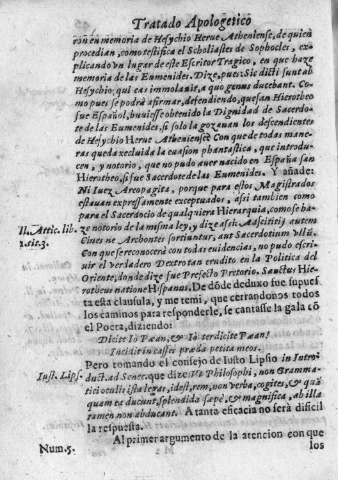 Tratado Apologetico
ron en memoria de Hesychio Heroe Atheniense, de quiẽ
procedian, como testifica el Scholiastes de Sophocles, ex-
plicando un lugar de este Escritor Tragico, en que haze
memoria de las Eumenides. Dize, pues: Sic dicti sunt ab
Hesychio, qui eas immolavit, a quo genus ducebant. Co-
mo pues se podrá afirmar, defendiendo, que san Hierotheo
fue Español, huviesse obtenido la Dignidad de Sacerdo-
te de las Eumenides, si solo la gozavan los descendientes
de Hesychio Heroe Atheniense? Con que de todas mane-
ras queda excluida la cuasion phantastica, que introdu-
cen, y notorio, que no pudo auer nacido en España san
Hierotheo, si fue Sacerdote de las Eumenides. Y añade:
Ni Iuez Areopagita, porque para estos Magistrados
estauan expressamente exceptuados, assi tambien como
para el Sacerdocio de qualquiera Hierarquia, como se ha-
Il. Attic. lib.
2. tit. 3.
ze notorio de la misma ley, y dize assi: Adscititij autem
Cives ne Archontes sortiuntur, aut Sacerdotium ullũ.
Con que se reconocerà con todas evidencias, no pudo escri-
uir el verdadero Dextro tan erudito en la Politica del
Oriente, donde dize fue Prefecto Pretorio, Sanctus Hie-
rotheus natione Hispanus. De dõde deduxo fue supues
ta esta clausula, y me remi, que cerrandonos todos
los caminos para responderle, se cantasse la gala cõ
el Poeta, diziendo:
Dicite Io Pæan, & Io ter dicite Pæan!
Incidit in casses præda petita meos.
Iust. Lips.
Pero tomando el consejo de Iusto Lipsio in Intro
duct. ad Senec. que dize: Ut Philosophi, non Gramma-
tici oculis ista legat, idest, rem, non verba, cogites, & quã
quam ea ducunt, splendida sæpè, & magnifica, ab illa
tamen non abducant. A tanta eficacia no serà dificil
la respuesta.
Num. 5.
Al primer argumento de la atencion con que
los